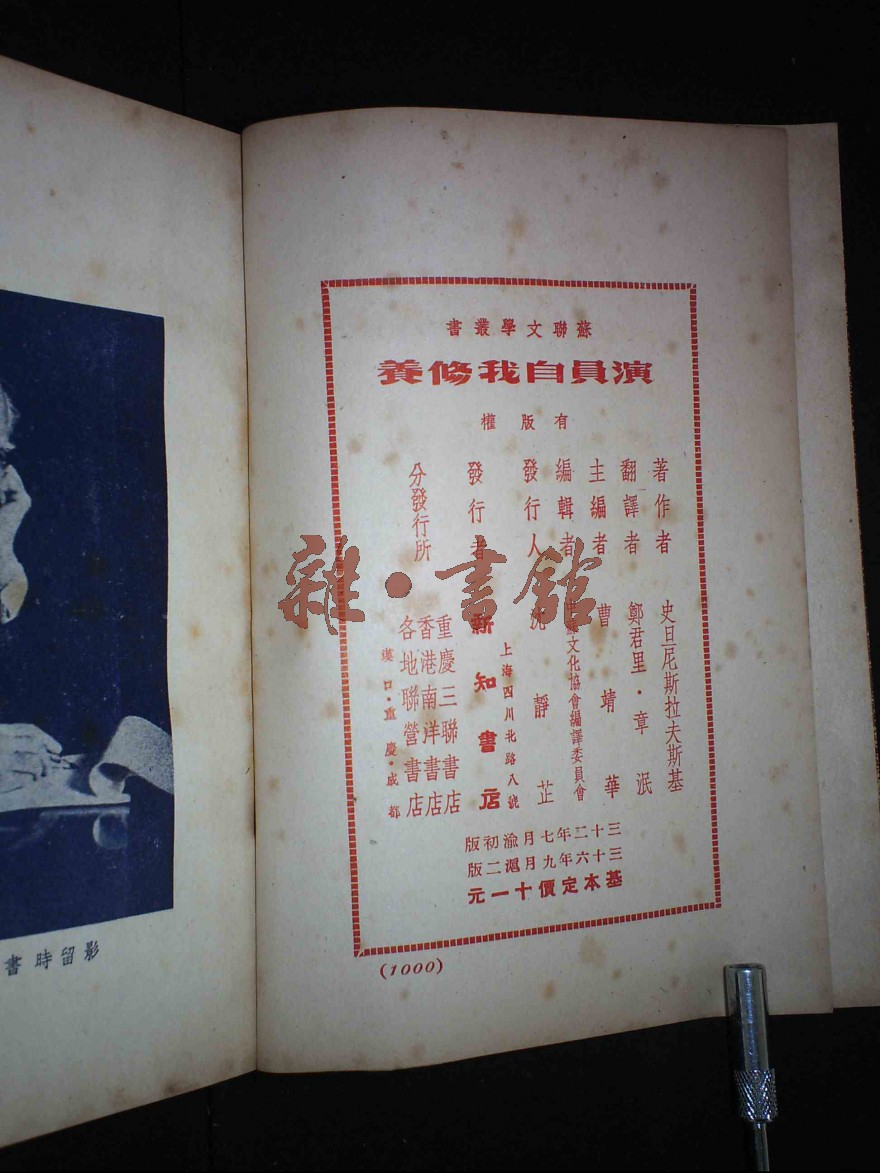 蘇聯文學叢書
演員自我修養
有版權
著作者 史旦尼斯拉夫斯基
翻譯者 鄭君里·章泯
主編者 曹靖華
編輯者 中蘇文化協會編譯委員會
發行人 沈靜芷
發行者 新知書店
上海四川北路八號
分發行所 重慶三聯書店
香港南洋書店
各地聯營書店
漢口·重慶·成都
三十二年七月渝初版
三十六年九月滬二版
基本定價十一元
(1000)
影留時書
雜·書館